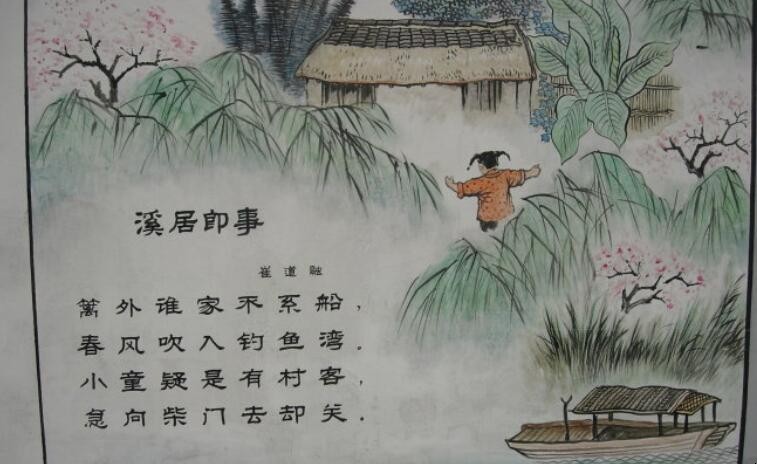 溪居即事
崔道融
篱外谁家不系船，
春风吹入钓鱼湾。
小童疑是有村客，
急向柴门去却关。